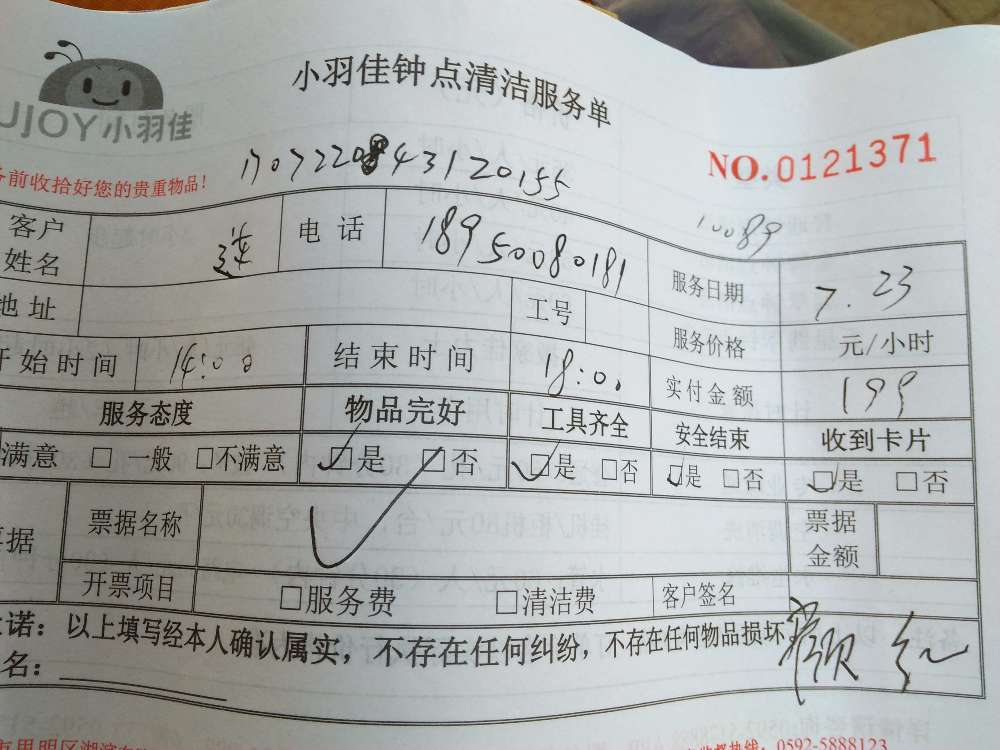 小羽佳钟点清洁服务单
UJOY小羽佳
NO.0121371
务前收拾好您的贵重物品!
170722084312 0155
10089
客户姓名 连 电话 18950080181 服务日期 7.23
地址 工号 服务价格 元/小时
开始时间 14:00 结束时间 18:00 实付金额 199
服务态度 物品完好 工具齐全 安全结束 收到卡片
满意 □ 一般 □不满意 □是 □否 □是 □否 □是 □否 □是 □否
票据名称 票据金额
开票项目 □服务费 □清洁费 客户签名
诺：以上填写经本人确认属实，不存在任何纠纷，不存在任何物品损坏
名：
0592-5888123